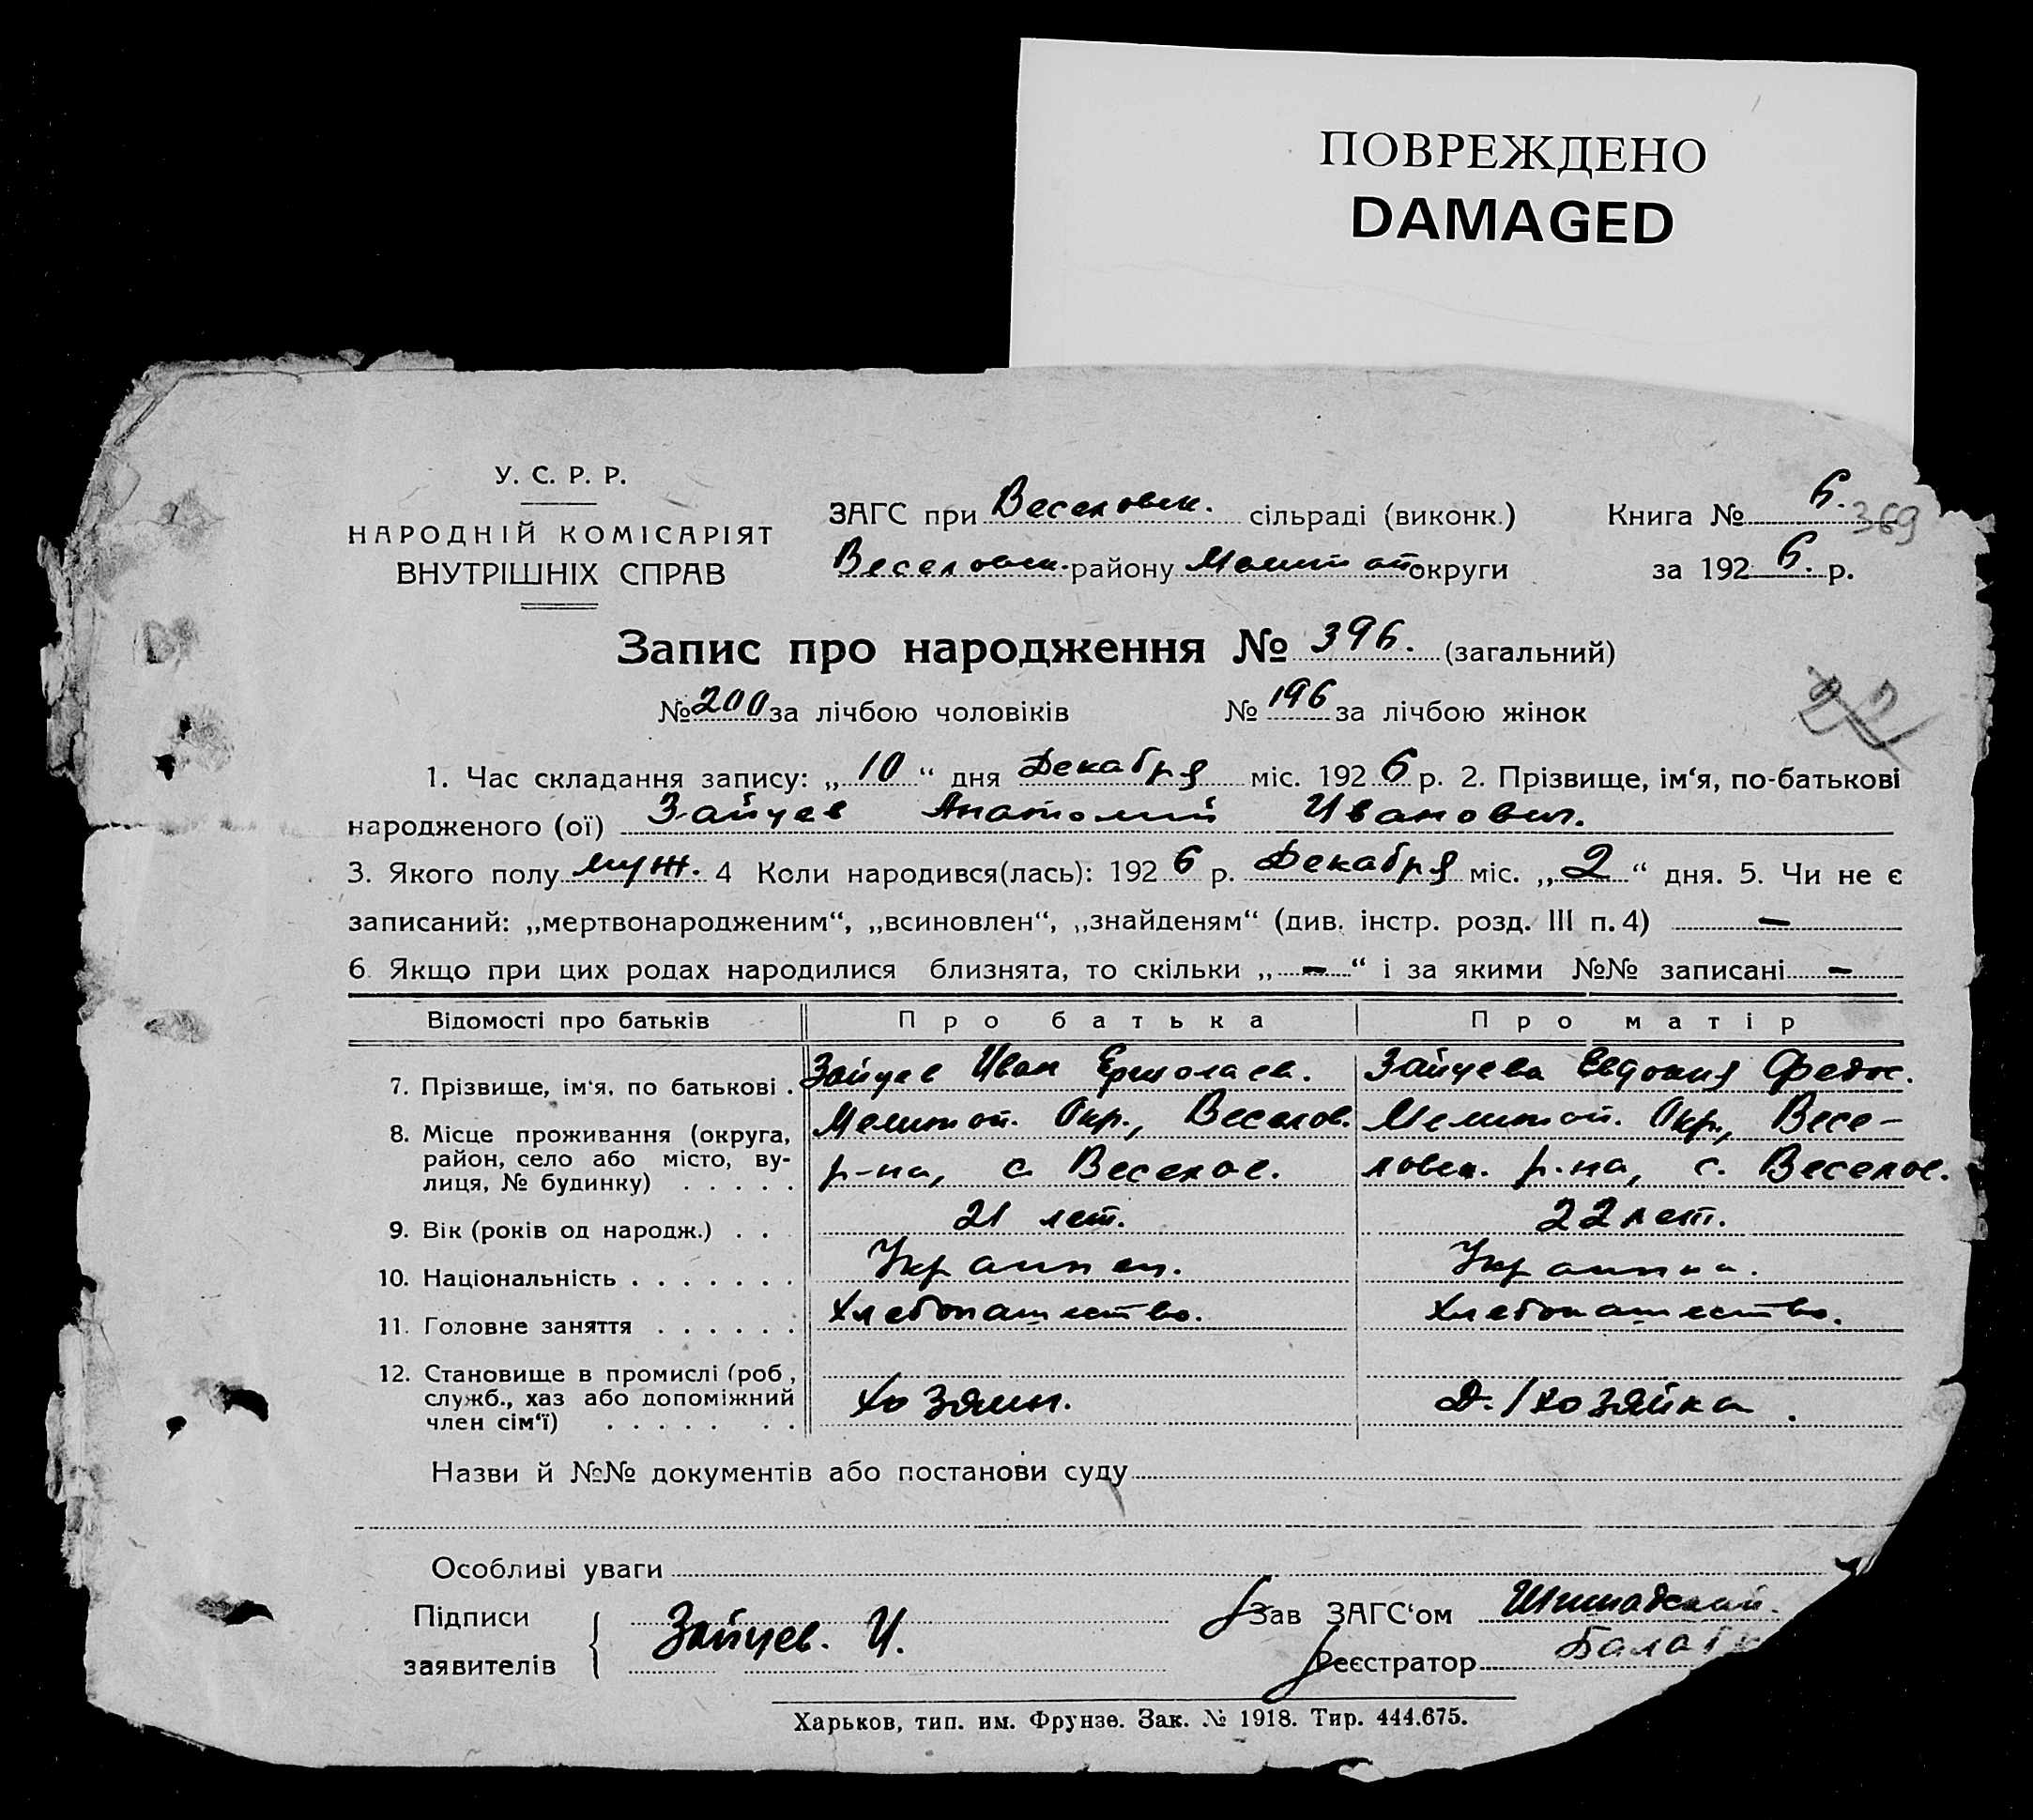 ПОВРЕЖДЕНО
DAMAGED
У. С. Р. Р.
НАРОДНІЙ КОМІСАРІЯТ
ВНУТРІШНІХ СПРАВ
ЗАГС при Веселовск. сільраді (виконк.)
Веселовск. району Мелитоп округи
Книга № 6.
369
за 1926. р.
Запис про народження № 396. (загальний)
№ 200 за лічбою чоловіків № 196 за лічбою жінок
22
1. Час складання запису: „ 10 “ дня Декабря міс. 1926 р. 2. Прізвище, ім‘я, по-батькові
народженого (ої) Зайцев Анатолий Иванович.
3. Якого полу муж. 4 Коли народився(лась): 1926 р. Декабря міс. „ 2 “ дня. 5. Чи не є
записаний: „мертвонародженим“, „всиновлен“, „знайденям“ (див. інстр. розд. III п. 4) —
6. Якщо при цих родах народилися близнята, то скільки „ — “ і за якими №№ записані —
Відомості про батьків Про батька Про матір
7. Прізвище, ім‘я, по батькові . Зайцев Иван Ермолаев. Зайцева Евдокия Федос.
8. Місце проживання (округа, район, село або місто, вулиця, № будинку) . . . . .
Мелитоп. Окр., Веселов.
р-на, с. Веселое.
Мелитоп. Окр., Весе-
ловск. р-на, с. Веселое.
9. Вік (років од народж.) . . 21 лет. 22 лет.
10. Національність . . . . . . . Украинец. Украинка.
11. Головне заняття . . . . . . Хлебопашество. Хлебопашество.
12. Становище в промислі (роб.,
служб., хаз або допоміжний
член сім‘ї) . . . . . . . Хозяин. Д. / хозяйка.
Назви й №№ документів або постанови суду
Особливі уваги
Підписи
заявителів
Зайцев. И.
Зав ЗАГС‘ом
Реєстратор
Харьков, тип. им. Фрунзе. Зак. № 1918. Тир. 444.675.